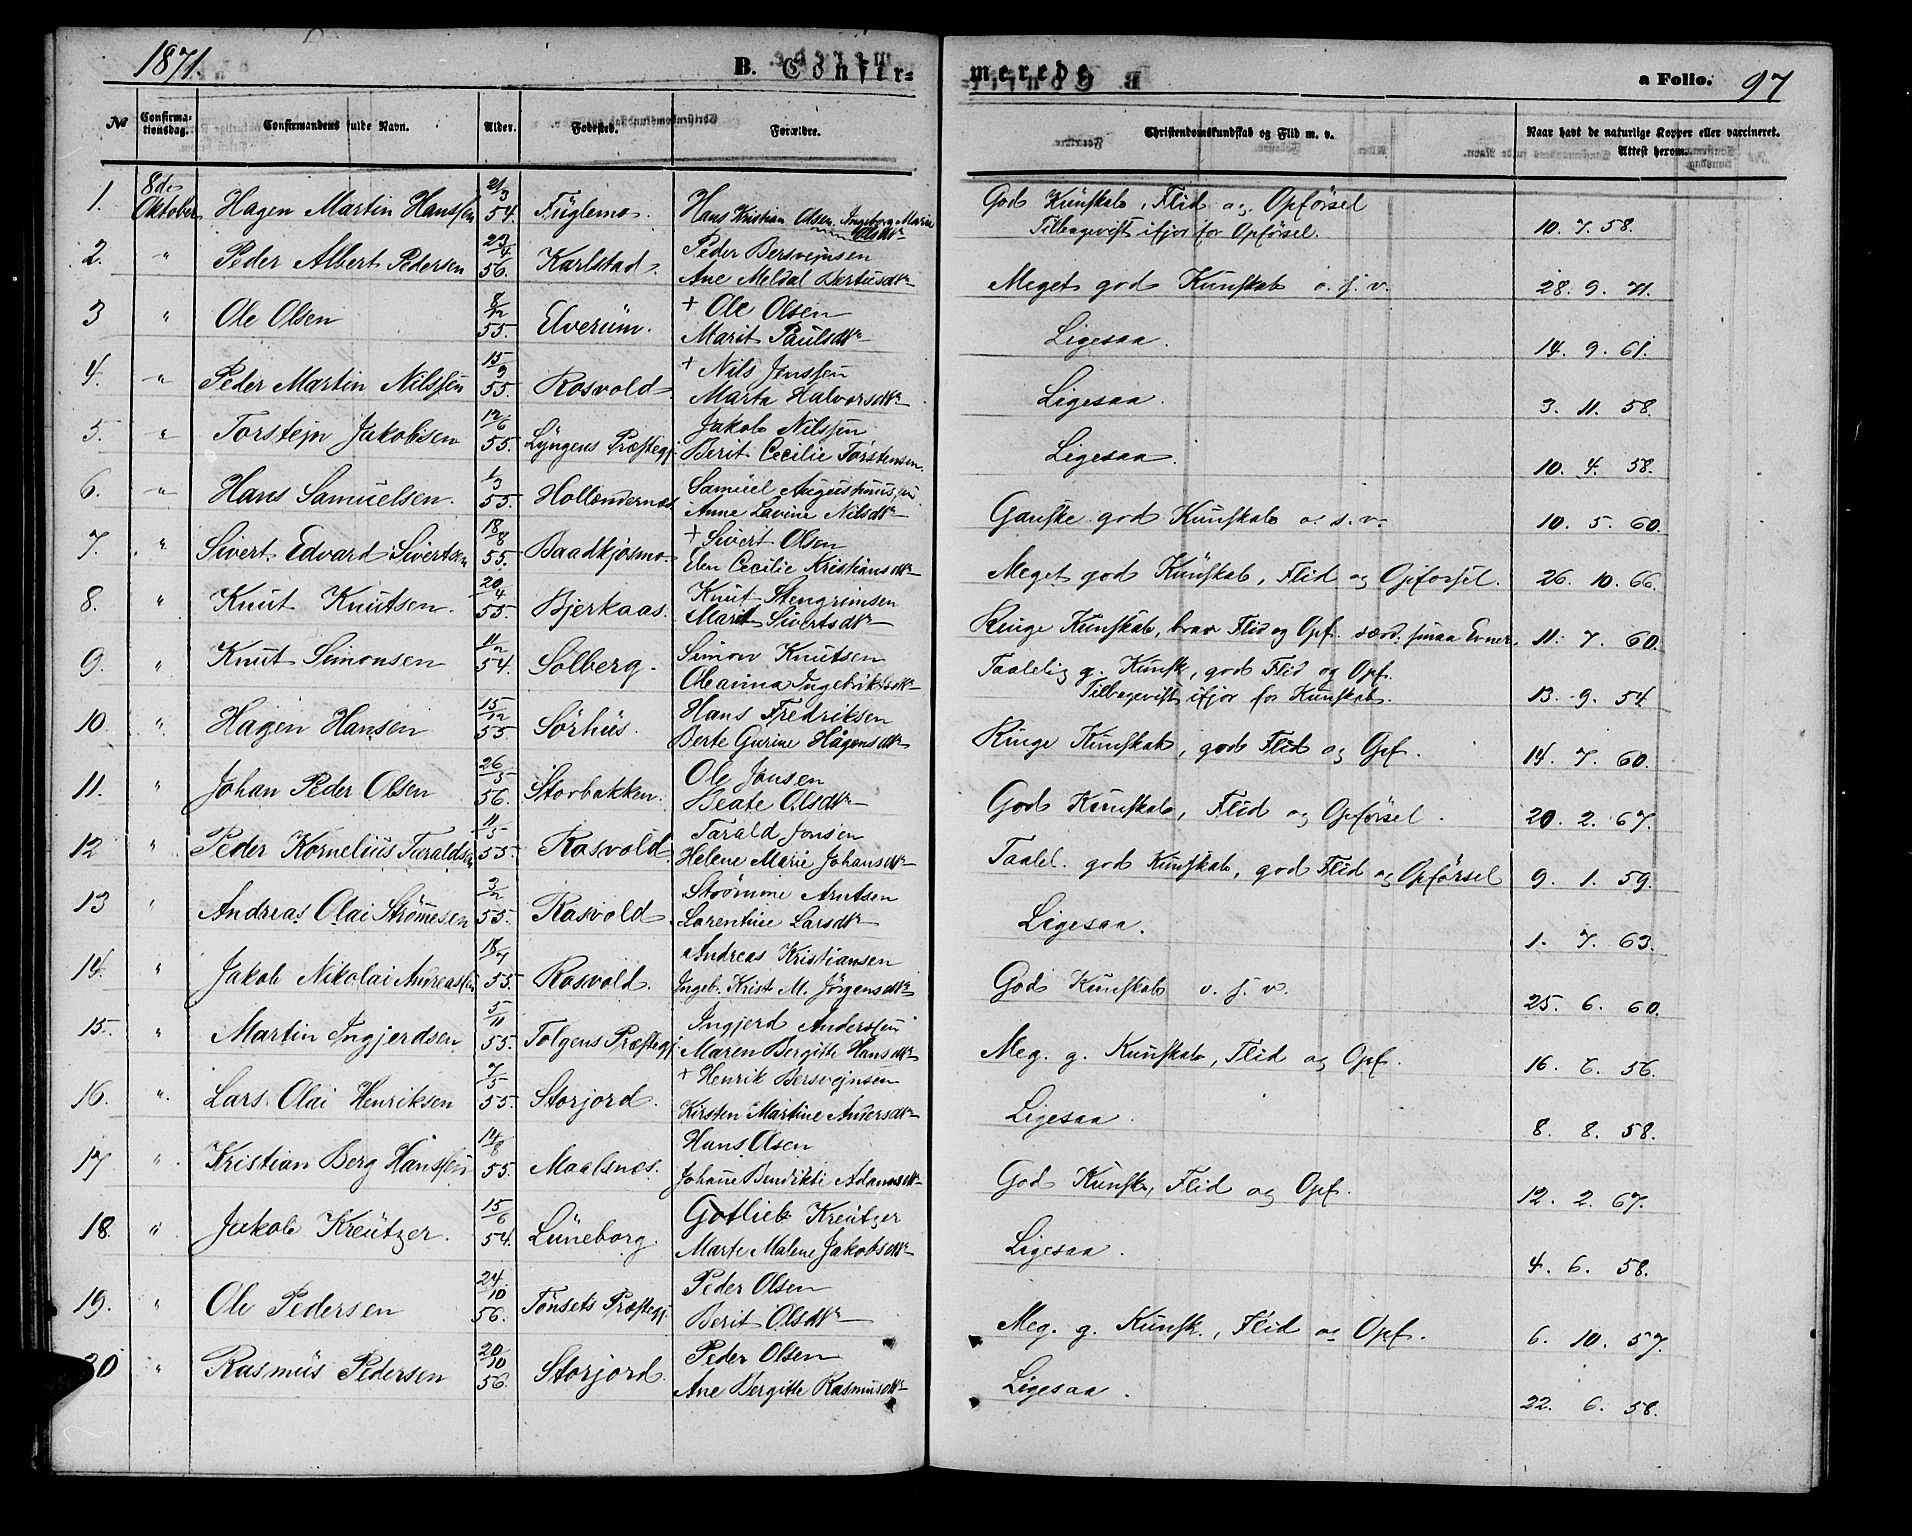 1871.
B. Confir-
merede
a Folio. 97
No
Confirma-
tionsdag.
Confirmandens fulde Navn.
Alder.
Fødested.
Forældre.
Christendomskundskab og Flid m. v.
Naar havt de naturlige Kopper eller vaccineret.
Attest herom.
1. 8de Oktober Hagen Martin Hanssen 21/3 54. Fuglemo. Hans Kristian Olsen, Ingeborg Maria Olsdtr God Kunskab, Flid og Opførsel
Tilbagevist ifjor for Opførsel. 10. 7. 58.
2. " Peder Albert Pedersen 23/4 56. Karlstad. Peder Bersvejnsen
Ane Meldal Bertusdtr Meget god Kunskab o. s. v. 28. 9. 71.
3 " Ole Olsen 8/12 55. Elverum. + Ole Olsen
Marit Paulsdtr Ligesaa. 14. 9. 61.
4. " Peder Martin Nilssen 15/9 55. Rosvold + Nils Jenssen
Marta Halvorsdtr Ligesaa. 3. 11. 58.
5. " Torstejn Jakobsen 12/6 55. Lyngens Præstegj. Jakob Nilssen
Berit Cecilie Torstensen Ligesaa. 10. 4. 58.
6. " Hans Samuelsen. 1/3 55. Hollendernæs Samuel Augustinussen
Anne Lavine Nilsdtr Ganske god Kunskab o. s. v. 10. 5. 60.
7. " Sivert Edvard Sivertsen 18/8 55. Baadkjosmo. + Sivert Olsen
Elen Cecilie Kristiansdtr Meget god Kunskab, Flid og Opførsel. 26. 10. 66.
8. " Knut Knutsen. 20/4 55. Bjerkaas. Knut Stengrimsen
Marit Sivertsdtr Ringe Kunskab, brav Flid og Opf. særd. smaa Evner. 11. 7. 60.
9. " Knut Simonsen 11/12 54. Solberg. Simon Knutsen
Oleanna Ingebriktsdtr Taalelig g. Kunsk, god Flid og Opf.
Tilbagevist ifjor for Kunskab. 13. 9. 54.
10. " Hagen Hansen 15/12 55 Sørhus. Hans Fredriksen
Berte Gurine Hågensdtr Ringe Kunskab, god Flid og Opf. 14. 7. 60.
11. " Johan Peder Olsen 26/5 56. Storbakken. Ole Jonsen
Beate Olsdtr God Kunskab, Flid og Opførsel. 20. 2. 67.
12 " Peder Kornelius Taraldsen 11/5 55. Rosvold. Tarald Jonsen
Helene Marie Johansdtr Taalel. god Kunskab, god Flid og Opførsel 9. 1. 59.
13 " Andreas Olai Strømesen 3/2 55. Rosvold Strømme Arntsen
Lorentine Larsdtr Ligesaa. 1. 7. 63.
14. " Jakob Nikolai Andreassen 18/7 55. Rosvold. Andreas Kristiansen
Ingeb. Krist M. Jørgensdtr God Kunskab o. s. v. 25. 6. 60.
15. " Martin Ingjerdsen 5/11 55. Tolgens Præstegj. Ingjerd Anderssen
Maren Bergitte Hansdtr Meg. g. Kunskab, Flid og Opf. 16. 6. 56.
16. " Lars Olai Henriksen 7/5 55. Storjord. + Henrik Bersvejnsen
Kirsten Martine Andersdtr Ligesaa. 8. 8. 58.
17. " Kristian Berg Hanssen 14/8 55. Maalsnes. Hans Olsen
Johane Bendikte Adamsdtr God Kunsk, Flid og Opf. 12. 2. 67.
18. " Jakob Kreutzer. 15/6 54. Lüneborg. Gotlieb Kreutzer
Marte Malene Jakobsdtr Ligesaa. 4. 6. 58.
19. " Ole Pedersen 24/10 56. Tønsets Præstegj. Peder Olsen
Berit Olsdtr Meg. g. Kunsk., Flid og Opf. 6. 10. 57.
20 " Rasmus Pedersen 20/10 56. Storjord. Peder Olsen
Ane Bergitte Rasmusdtr Ligesaa. 22. 6. 58.